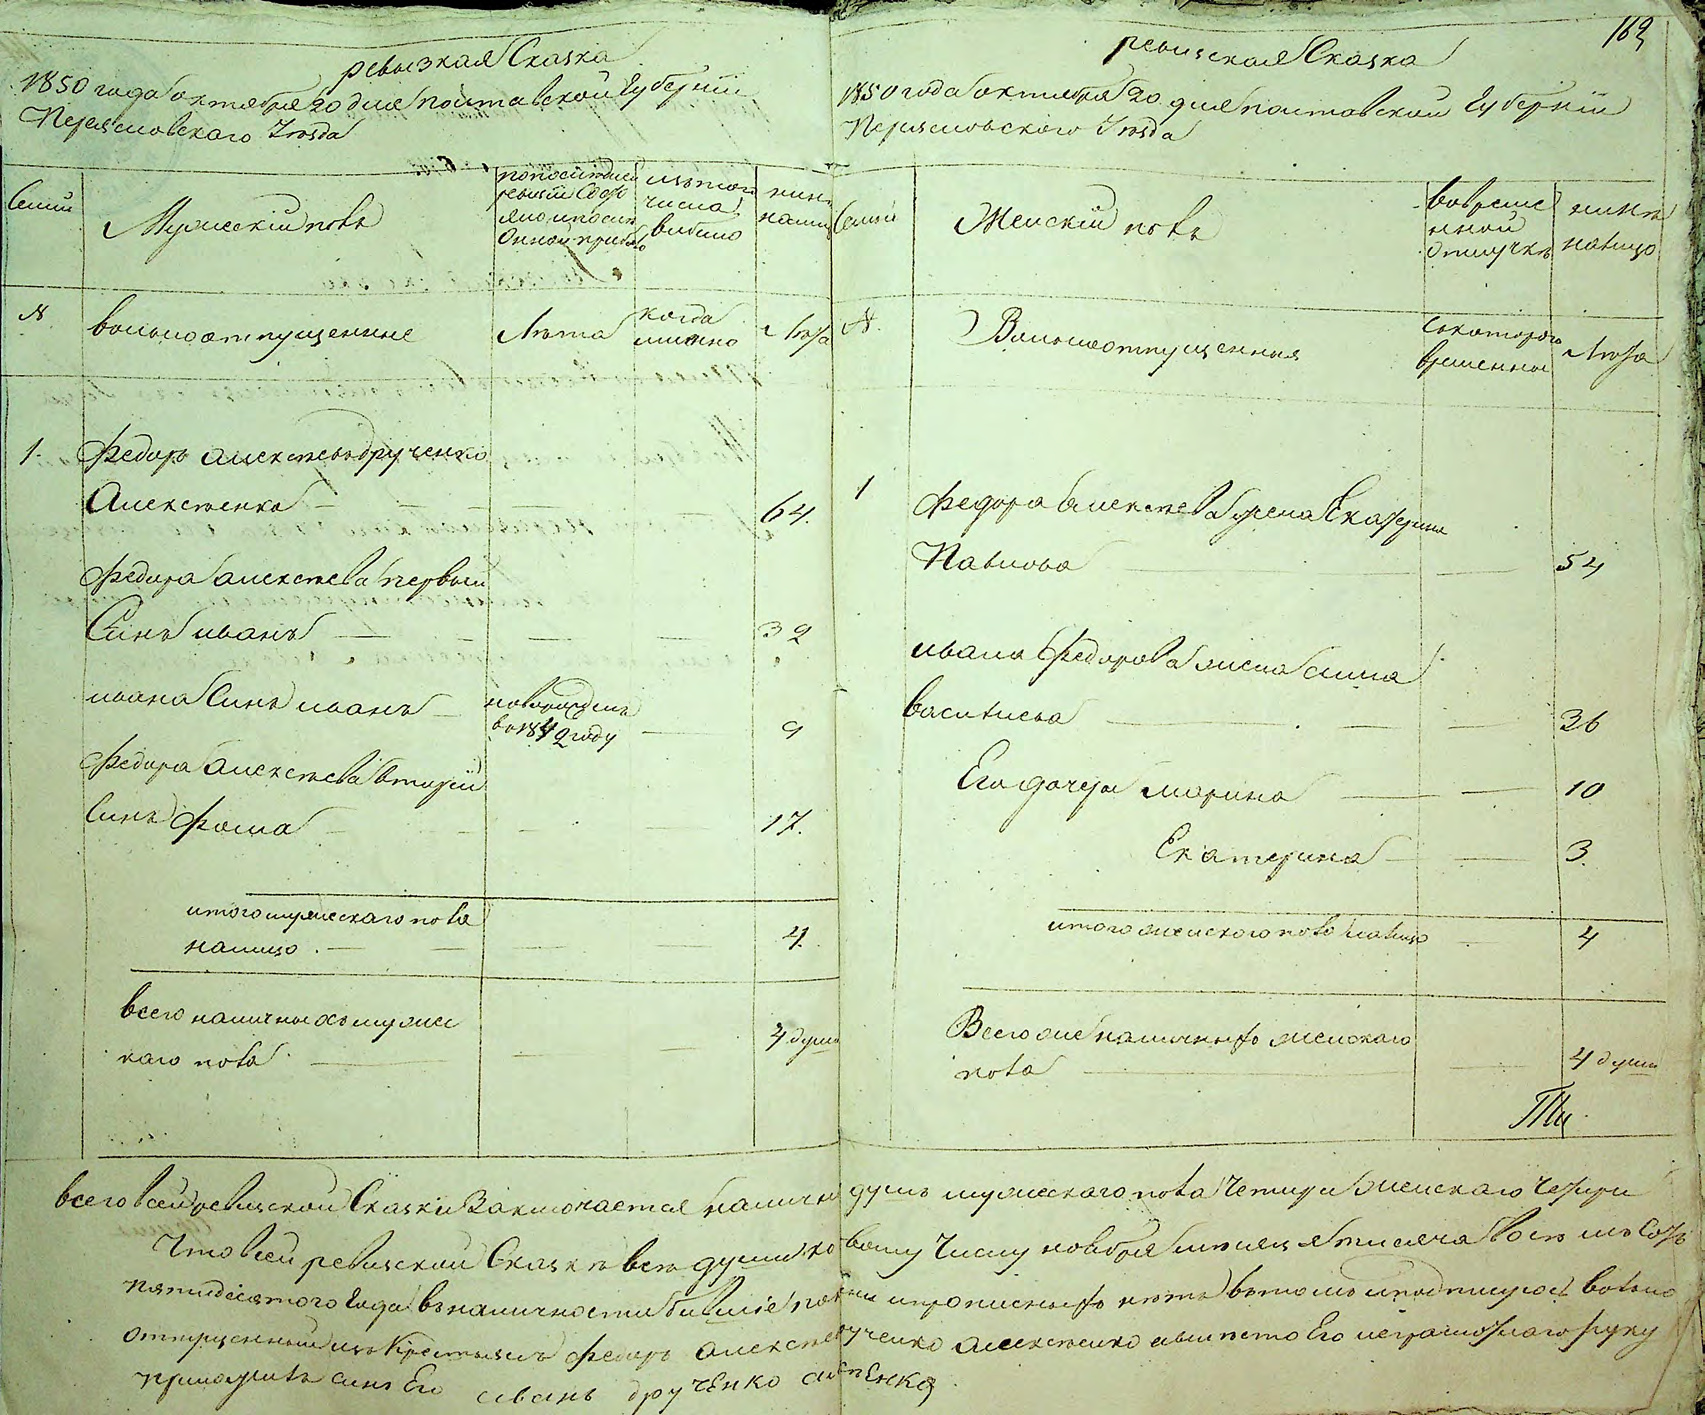 ревызкая Сказка
1850 года октября 20 дня полтавской Губернiи
Переясловского Уезда
Семьи
Мужескiй полъ
попоследней
ревизiи Состо
яло ипосли
Онной прибыло
изтого
числа
выбыло
нине
налицо
№
вольноотпущенние
Лета
когда
имянно
Лета
1. Федоръ алексеевъ друченко
Алексеенко 64.
Федора алексеева первый
Синъ иванъ 32
ивана Синъ иванъ новорожденъ
в 1842 году 9
Федора алексеева вторий
Синъ Фома 17.
итого мужескаго пола
налицо 4.
всего наличныхъ мужес
каго пола 4 души
162
ревизская Сказка
1850 года октября 20 дня полтавской Губернiи
Переясловского Уезда
Семьи
Женскiй полъ
вовреме
нной
отлучке
нине
налицо
№.
Вольноотпущенния
Скоторого
времены
Лета
1 Федора алексеева жена Екатерина
Павлова 54
ивана Федорова жена анна
василиева 36
Его дочери марина 10
Екатерина 3.
итого женского пола налицо 4
Всего же наличныхъ женскаго
пола 4 души
всего всей ревизской Сказки Заключается наличн душъ мужескаго пола Четири женскаго Четири
Что всей ревизской Сказке все души по вому Числу ноября месяця тисяча восемъ Сотъ
пятидесятого Года вналичности бившiе прописныхъ нетъ втомъ иподписуюсъ волно
отпущенный изъ Крестьянъ федоръ алексеевъ друченко алексеенко авместо Его неграмотнаго руку
приложилъ синъ Его иванъ друЧЕнко алЕксЕЕнко